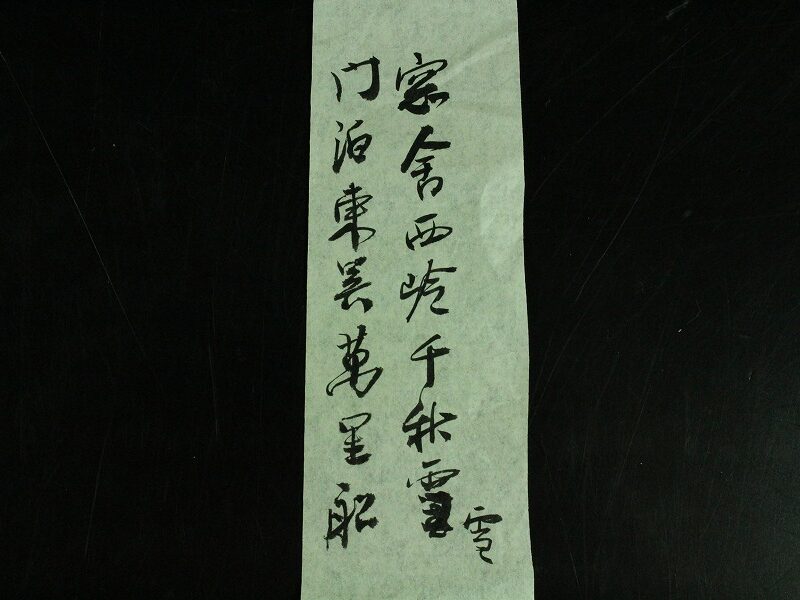 窓含西岭千秋雪
雪
门泊東吴萬里船